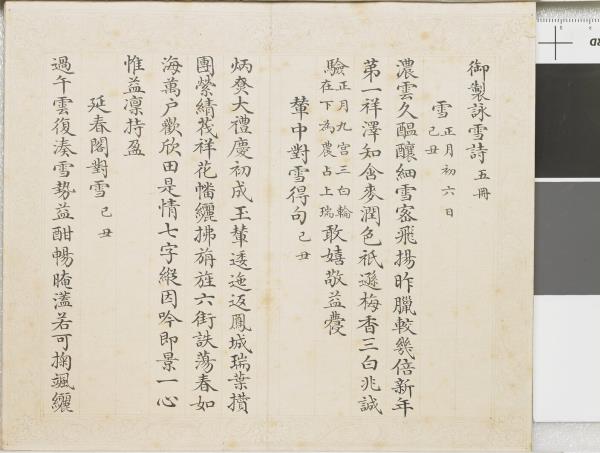 御製詠雪詩五冊
雪 正月初六日
己丑
濃雲久醖釀細雪密飛揚昨臘較幾倍新年
第一祥澤知含麥潤色祇遜梅香三白兆誠
驗 正月九宮三白輪
在下為農占上瑞 敢嬉敬益蘉
輦中對雪得句 己丑
炳癸大禮慶初成玉輦逶迤返鳳城瑞葉攢
團縈綪茷祥花幡纚拂旃旌六街詄蕩春如
海萬户歡欣田是情七字緞因吟即景一心
惟益凛持盈
延春閣對雪 己丑
過午雲復湊雪勢益酣暢晻藹若可掬颯纚